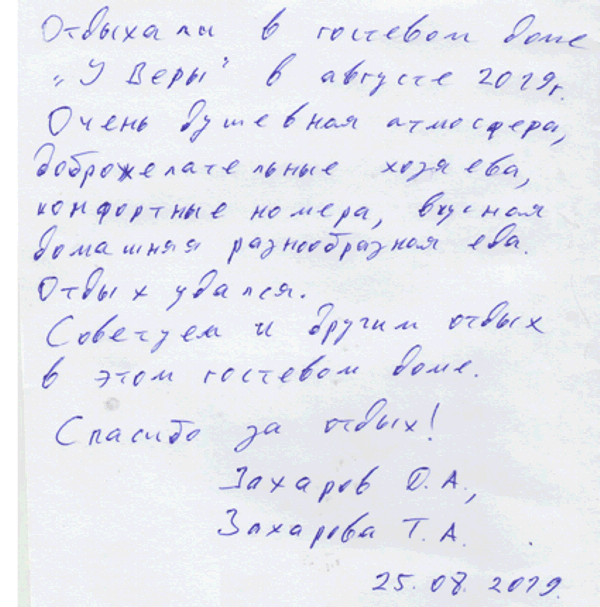 Отдыхали в гостевом доме
„У Веры" в августе 2019г.
Очень душевная атмосфера,
доброжелательные хозяева,
комфортные номера, вкусная
домашняя разнообразная еда.
Отдых удался.
Советуем и другим отдых
в этом гостевом доме.
Спасибо за отдых!
Захаров О.А.,
Захарова Т.А.
25.08.2019.